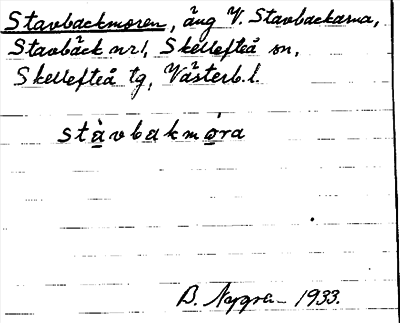 Stavbackmoren, äng V. Stavbackarna,
Stavbäck nr 1, Skellefteå sn,
Skellefteå tg, Västerb. l.
stàvbakmo̲ra
B. Nygren 1933.